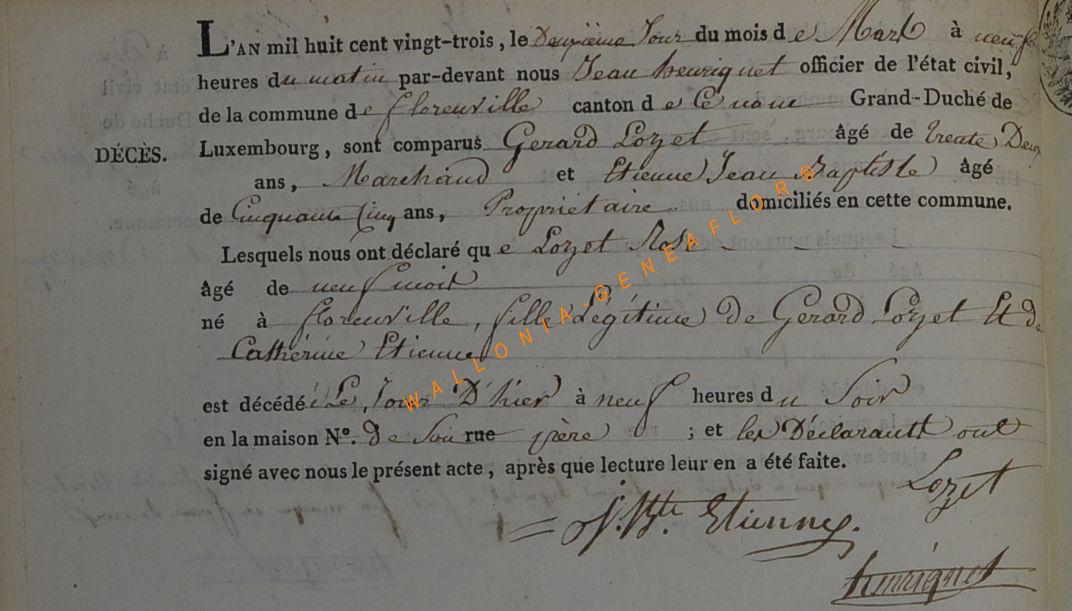 L'AN mil huit cent vingt-trois, le Deuxième Jour du mois de Mars à neuf
heures du matin par-devant nous Jean henriquet officier de l'état civil,
de la commune de florenville canton de Grand-Duché de
DÉCÈS. Luxembourg, sont comparus Gerard Lozet âgé de trente Deux
ans, Marchand et Etienne Jean Baptiste âgé
de Cinquante Cinq ans, Propriétaire domiciliés en cette commune.
Lesquels nous ont déclaré que Lozet Rose
âgé de neuf mois
né à florenville, fille Légitime de Gerard Lozet Et de
Catherine Etienne
est décédée Le Jour D'hier à neuf heures du Soir
en la maison N°. de Son rue père ; et les Déclarants ont
signé avec nous le présent acte, après que lecture leur en a été faite.
Lozet
J. Bte Etienne.
henriquet
WALLONIA-GENEAFLORE